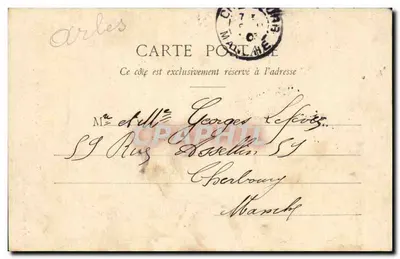 Arles
CARTE POSTALE
Ce côté est exclusivement réservé à l'adresse
Mr et Mlle Georges Lefèvre
59 Rue Asselin 59
Cherbourg
Manche
CPAPHIL